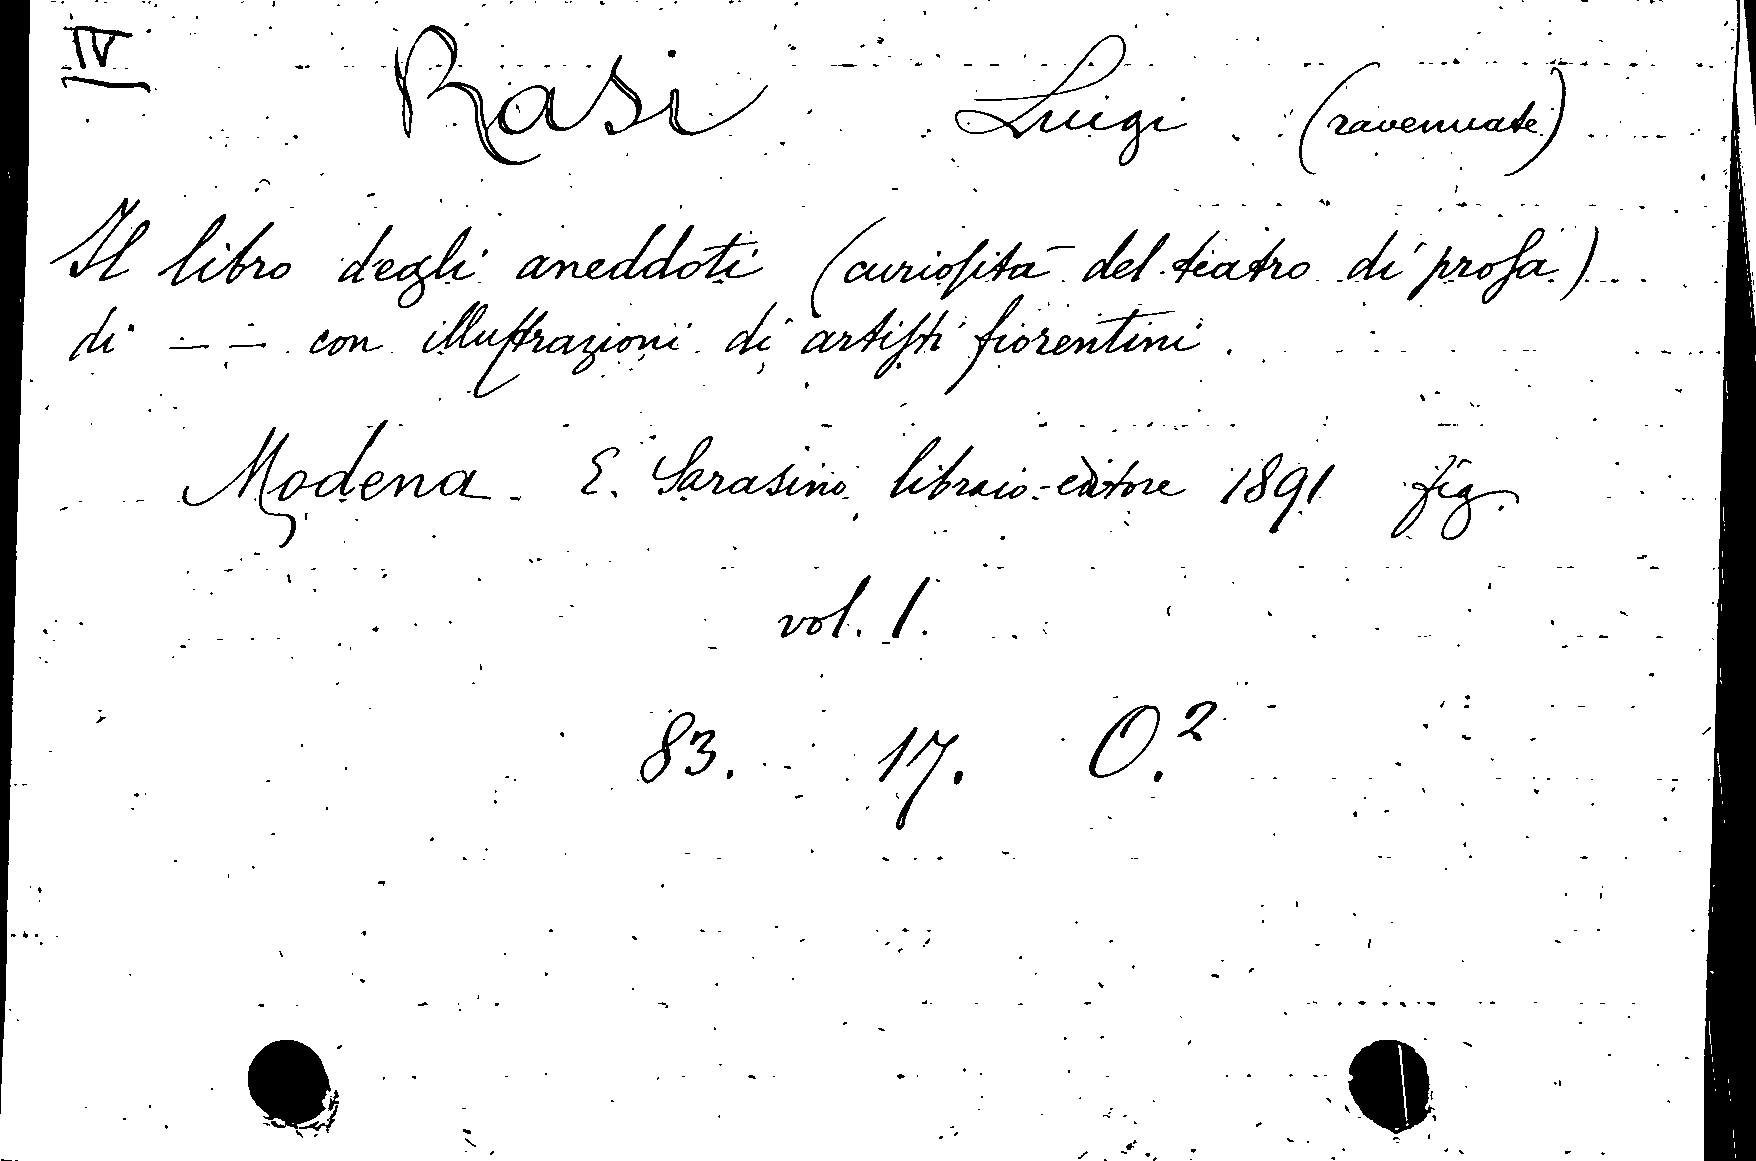 IV
Rasi Luigi (ravennate)
Il libro degli aneddoti (curiosità del teatro di prosa)
di — — con illustrazioni di artisti fiorentini.
Modena. E. Sarasino, libraio-editore 1891 fig.
vol. 1.
83. 17. O.²